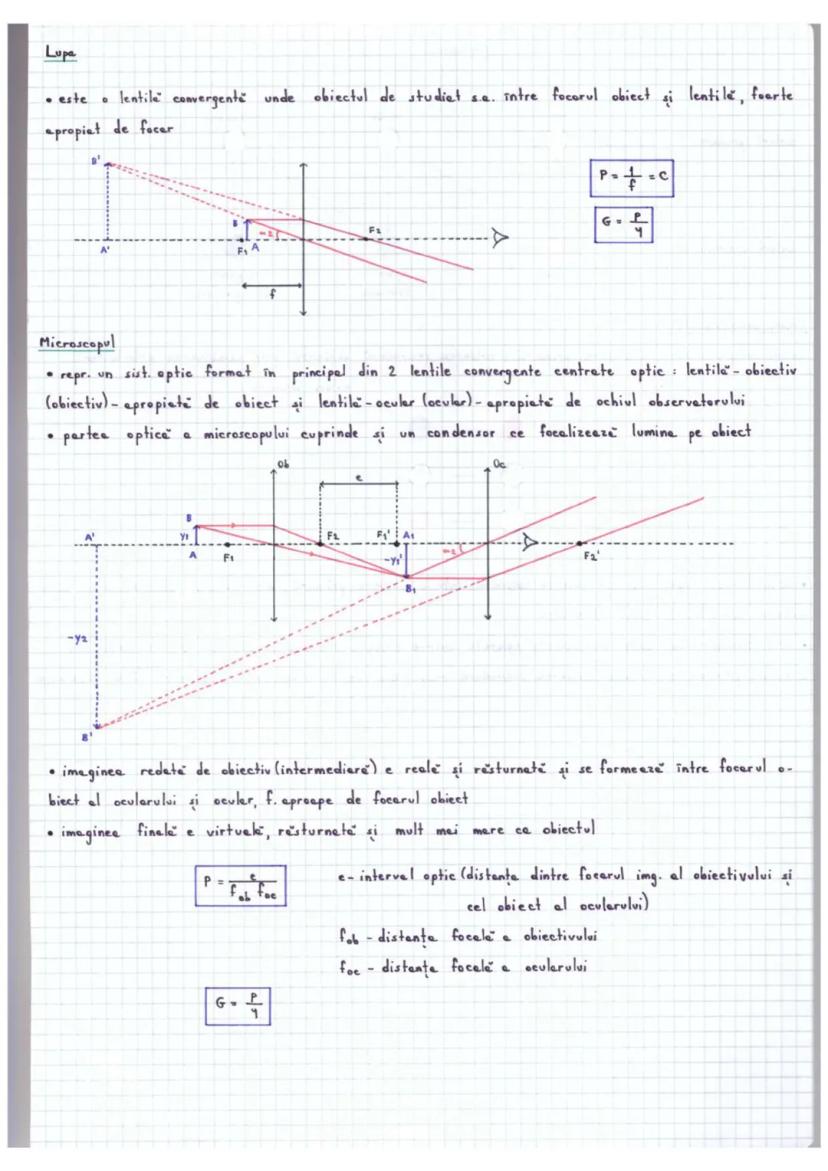 Lupa
• este o lentilă convergentă unde obiectul de studiat s.a. între focarul obiect și lentilă, foarte
apropiat de focar
B'
P = 1/f = C
G = P/4
B
α2
F2
A'
F1 A
f
Microscopul
• repr. un sist. optic format în principal din 2 lentile convergente centrate optic : lentilă - obiectiv
(obiectiv) - apropiată de obiect și lentilă - ocular (ocular) - apropiată de ochiul observatorului
• partea optică a microscopului cuprinde și un condensor ce focalizează lumina pe obiect
Ob
Oc
e
B
y1
A'
F2
F1' A1
α2
A
F1
-y1'
F2'
B1
-y2
B'
• imaginea redată de obiectiv (intermediară) e reală și răsturnată și se formează între focarul o-
biect al ocularului și ocular, f. aproape de focarul obiect
• imaginea finală e virtuală, răsturnată și mult mai mare ca obiectul
P = e/(fob foc)
e - interval optic (distanța dintre focarul img. al obiectivului și
cel obiect al ocularului)
fob - distanța focală a obiectivului
foc - distanța focală a ocularului
G = P/4